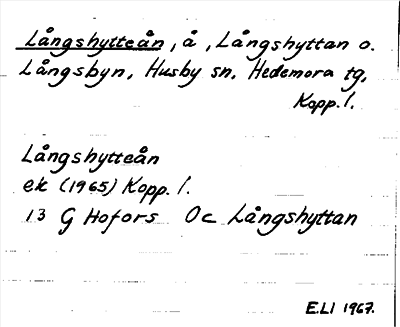 Långshytteån, å, Långshyttan o.
Långsbyn, Husby sn. Hedemora tg,
Kopp. l.
Långshytteån
ek (1965) Kopp. l.
13 G Hofors 0c Långshyttan
E.LI 1967.